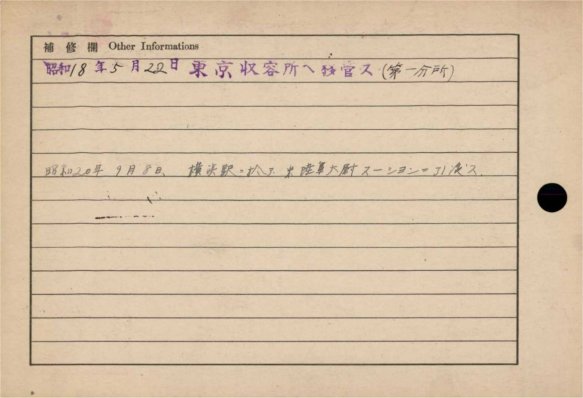 補修欄 Other Informations
昭和18年5月22日 東京収容所へ移管ス (第一分所)
昭和20年9月8日、横浜駅ニ於テ 米陸軍大尉スーションニ引渡ス.